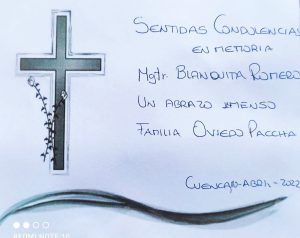 SENTIDAS CONDOLENCIAS
EN MEMORIA
Mgtr. BLANQUITA ROMERO
UN ABRAZO INMENSO
FAMILIA OVIEDO PACCHA
CUENCA, ABRIL - 2022
REDMI NOTE 10